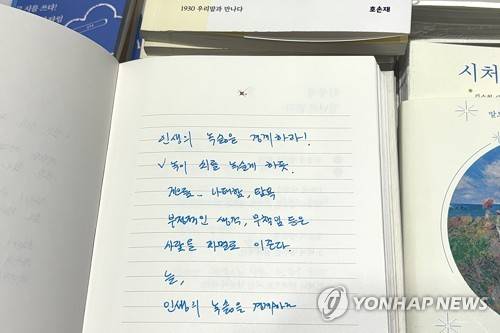 시를 쓰다!
1930 우리말과 만나다
호손재
시처
인생의 녹슮을 경계하라!
✓ 녹이 쇠를 녹슬게 하듯.
게으름... 나태함, 탐욕
부정적인 생각, 무책임 등은
사람을 자멸로 이끈다.
늘,
인생의 녹슮을 경계하라
YONHAP NEWS